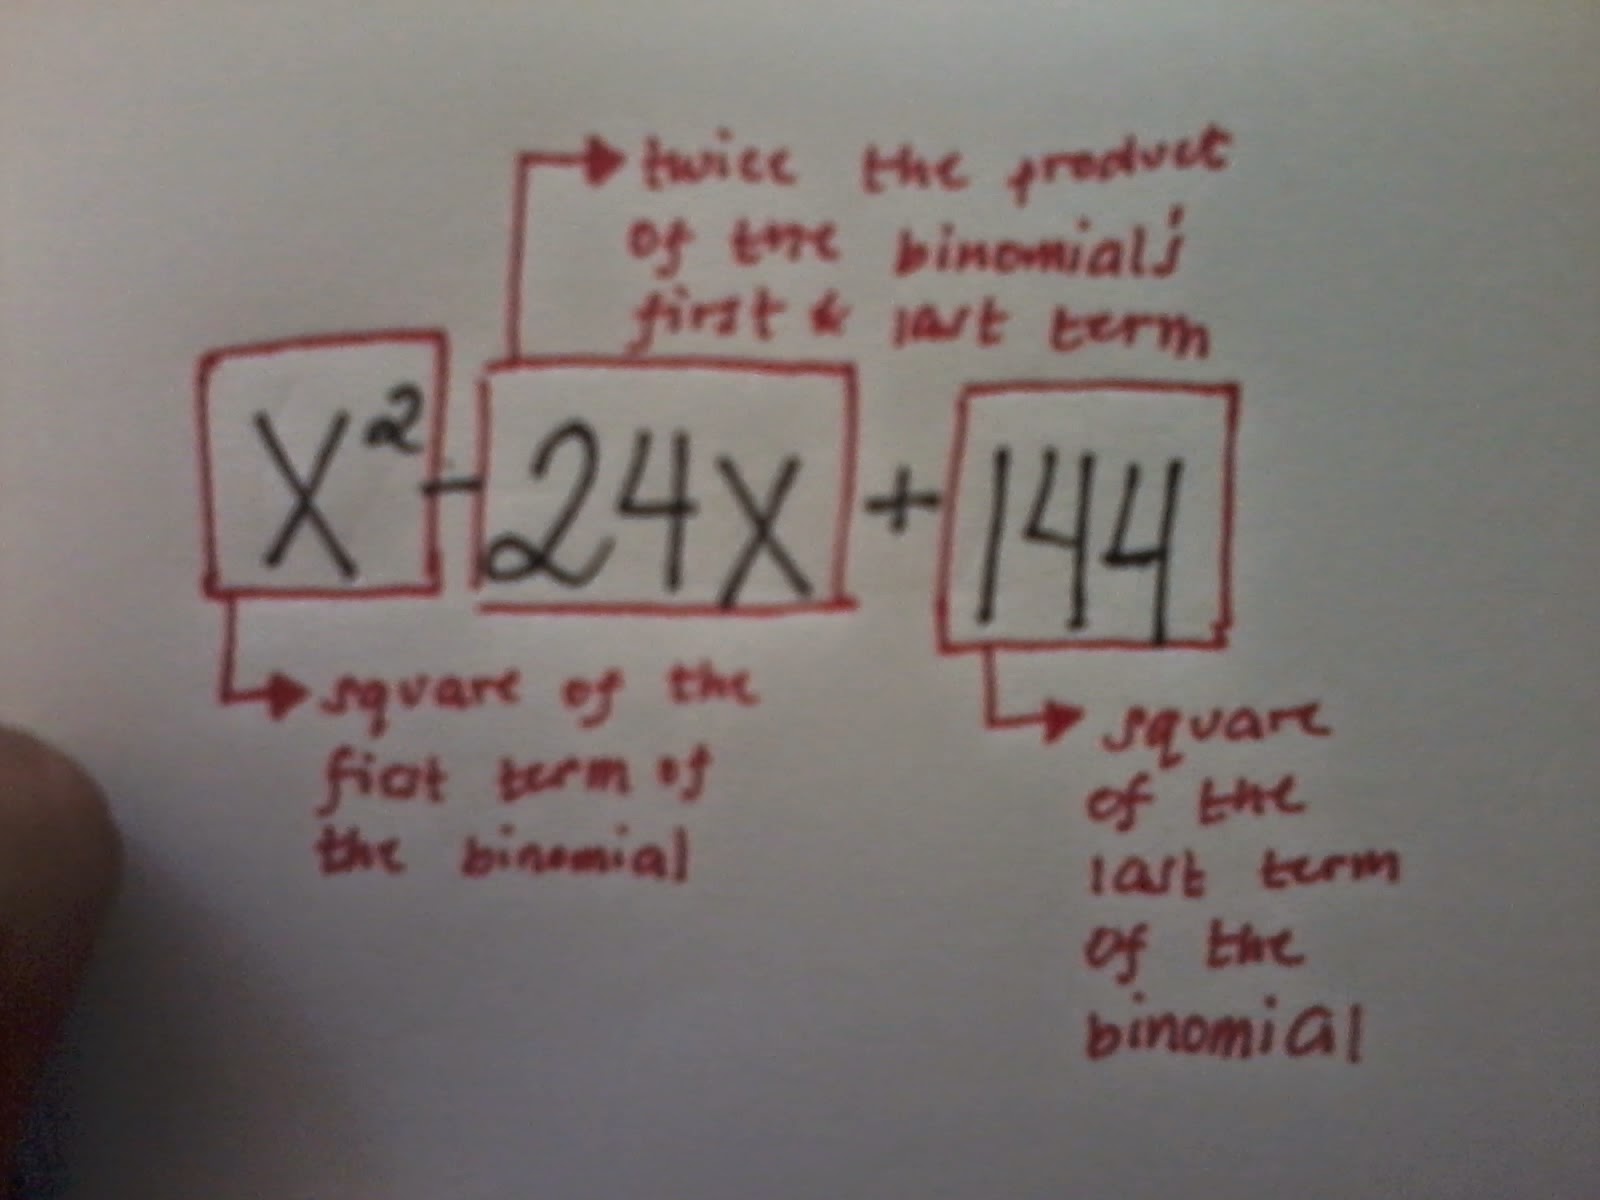 twice the product
of the binomial's
first & last term
x² - 24x + 144
square of the
first term of
the binomial
square
of the
last term
of the
binomial